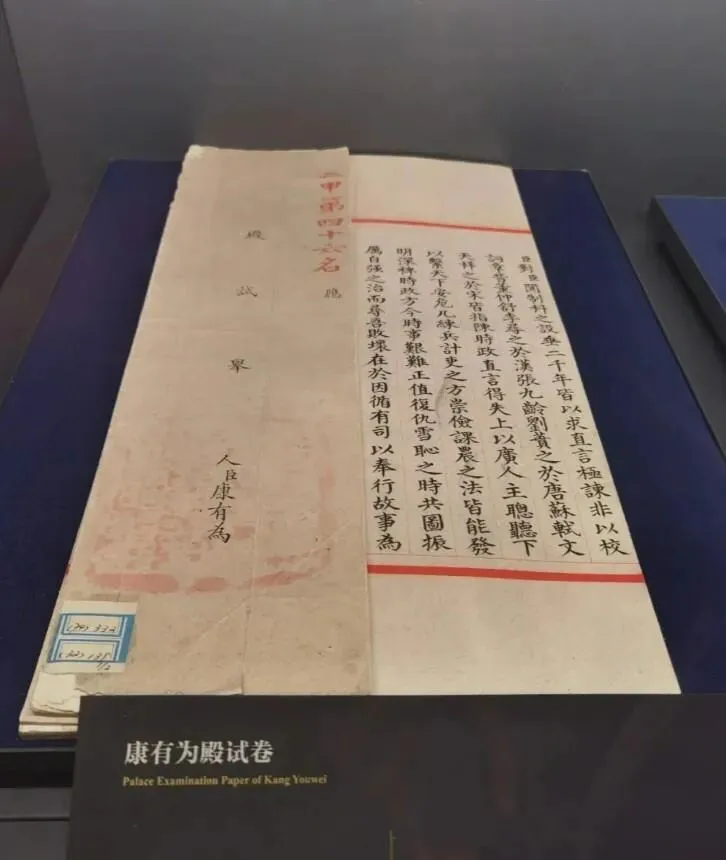 臣對臣聞制科之設垂二千年皆以求直言極諫非以校
詞章昔董仲舒李尋之於漢張九齡劉蕡之於唐蘇軾文
天祥之於宋皆指陳時政直言得失上以廣人主聰聽下
以繫天下安危凡練兵計吏之方崇儉課農之法皆能發
明深裨時政方今時事艱難正值復仇雪恥之時共圖振
厲自强之治而尋吾敗壞在於因循有司以奉行故事為
二甲第四十六名
應
殿試舉
人臣康有為
康有为殿试卷
Palace Examination Paper of Kang Youwei